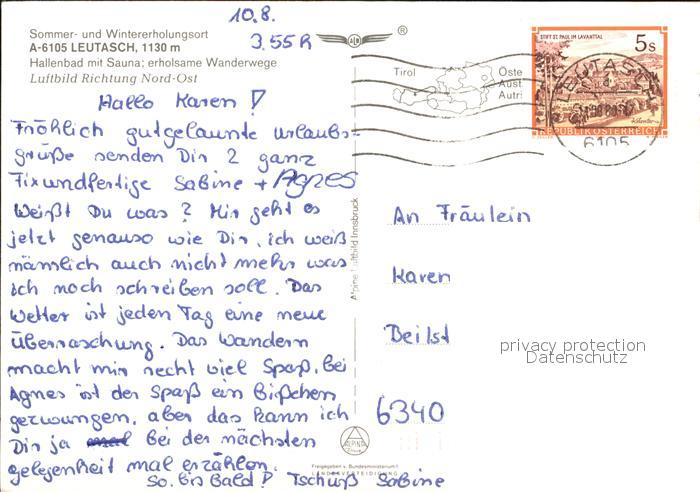 10.8.
3.55 R
Sommer- und Wintererholungsort
A-6105 LEUTASCH, 1130 m
Hallenbad mit Sauna; erholsame Wanderwege
Luftbild Richtung Nord-Ost
Hallo Karen!
Fröhlich gutgelaunte urlaubs-
grüße senden Dir 2 ganz
Fixundfertige Sabine + Agnes
Weißt Du was? Mir geht es
jetzt genauso wie Dir, ich weiß
nämslich auch nicht mehr was
ich noch schreiben soll. Das
Wetter ist jeden Tag eine neue
Überraschung. Das Wandern
macht mir recht viel Spaß, bei
Agnes ist der Spaß ein bißchen
gezwungen, aber das kann ich
Dir ja bei der nächsten
gelegenheit mal erzählen.
So. bis bald! Tschüß Sabine
Alpine Luftbild Innsbruck
Freigegeben v. Bundesministerium f.
LANDESVERTEIDIGUNG
ALPINE
Tirol
Öste
Aust
Autri
STIFT ST. PAUL IM LAVANTTAL
5 S
REPUBLIK ÖSTERREICH
LEUTASCH
6105
An Fräulein
Karen
Beilst
6340
privacy protection
Datenschutz